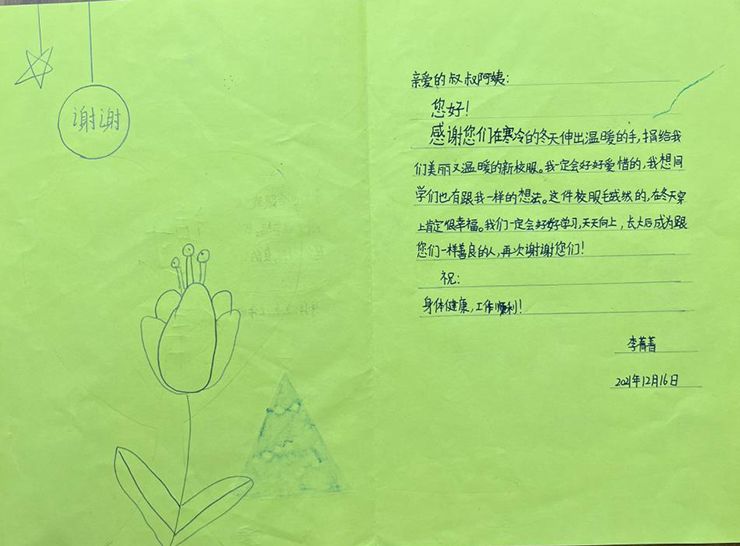 谢谢
亲爱的叔叔阿姨:
您好!
感谢您们在寒冷的冬天伸出温暖的手,捐给我
们美丽又温暖的新校服。我一定会好好爱惜的,我想同
学们也有跟我一样的想法。这件校服毛绒绒的,在冬天穿
上肯定很幸福。我们一定会好好学习,天天向上,长大后成为跟
您们一样善良的人,再次谢谢您们!
祝:
身体健康,工作顺利!
李
2021年12月16日